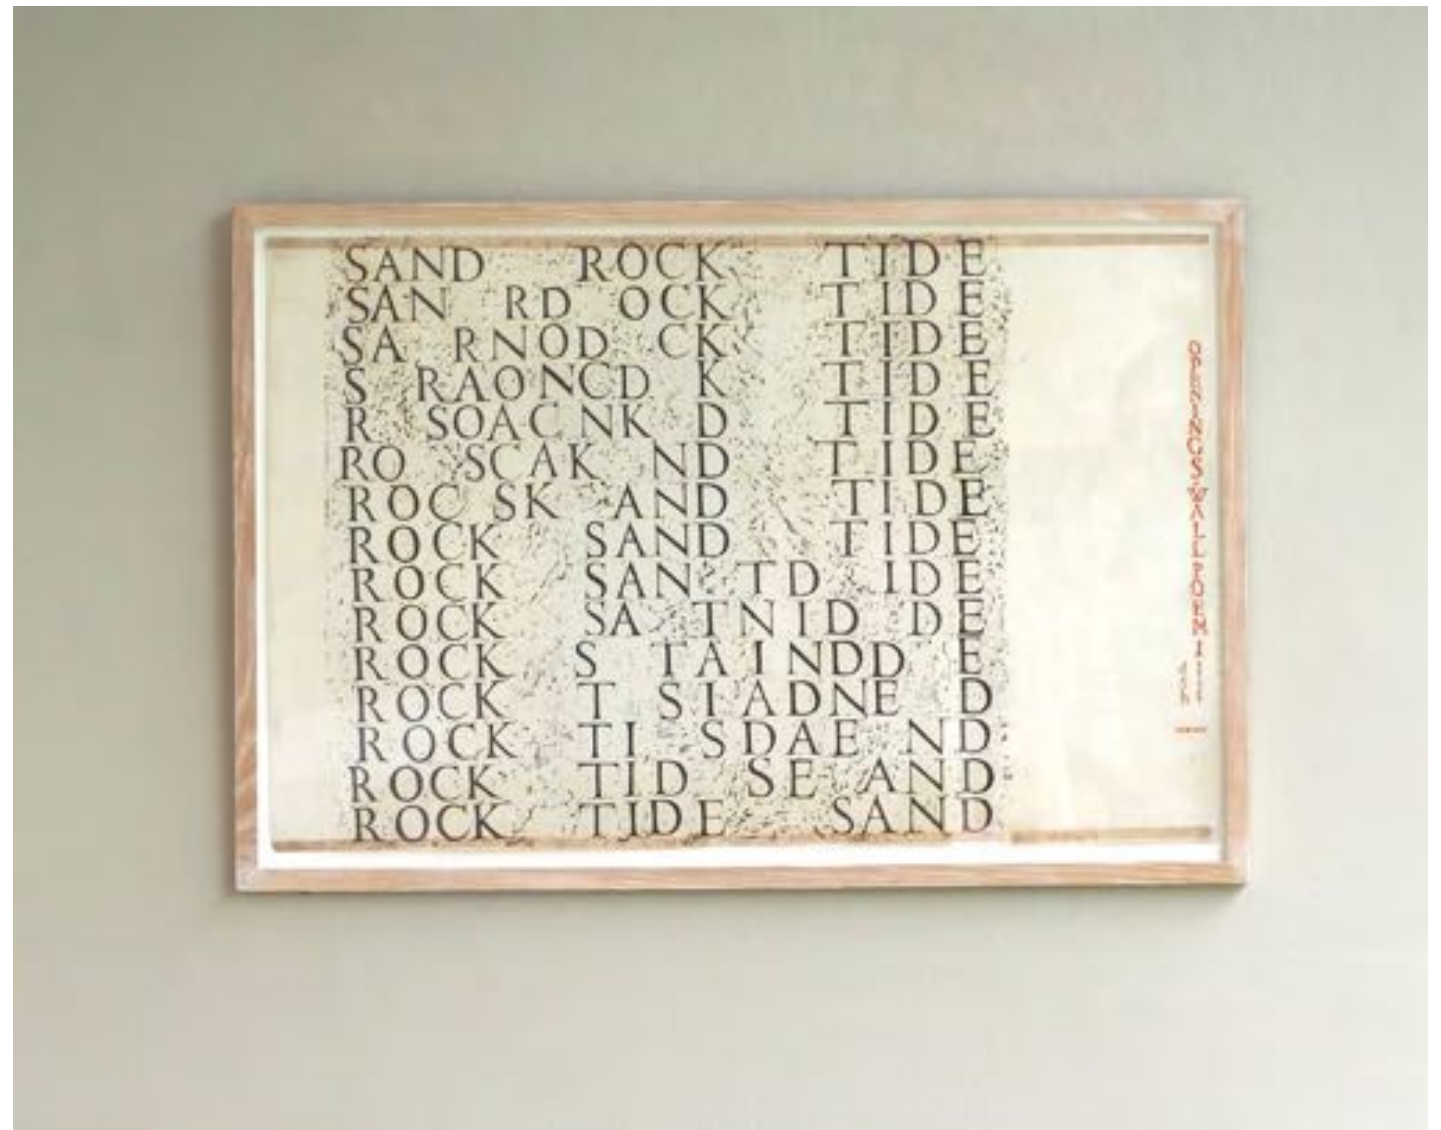 SAND ROCK TIDE
SAN RD OCK TIDE
SA RNOD CK TIDE
S RAONCD K TIDE
R SOACNK D TIDE
RO SCAK ND TIDE
ROC SK AND TIDE
ROCK SAND TIDE
ROCK SAN TD IDE
ROCK SA TNID DE
ROCK S TAINDD E
ROCK T SIADNE D
ROCK TI SDAE ND
ROCK TID SE AND
ROCK TIDE SAND
OPENINGS WALL POEM 1